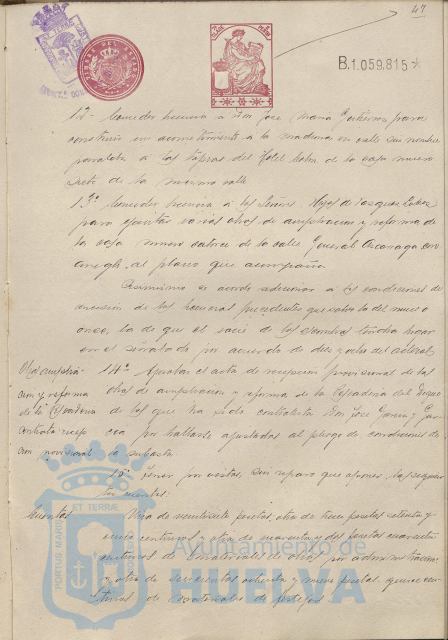 47
B.1.059.815
12º Conceder licencia a Don José María Gutiérrez para
construir un acometimiento a la madrona en calle sin nombre
paralela a las tapias del Hotel Colon de la casa numero
siete de la misma calle
13º Conceder licencia a los Señores Hijos de Vazquez Lopez
para ejecutar varias obras de ampliacion y reforma de
la casa numero catorce de la calle General Azcarraga con
arreglo al plano que acompaña
Asimismo se acordó adicionar a las condiciones de
concesion de las licencias precedentes que sobre la del numero
once, la de que el vacie de los escombros tendra lugar
en el señalado por acuerdo de diez y ocho del actual
Obra ampliá-
cion y reforma
de la Pescaderia
contrata recep
cion provisional
14º Aprobar el acta de recepcion provisional de las
obras de ampliacion y reforma de la Pescaderia del Duque
de los que ha sido contratista Don Jose Garcia y Garcia
por hallarse ajustadas al pliego de condiciones de
la subasta
15º Tener por vistas, sin reparo que oponer, las seguien
tes cuentas:
Cuentas
Una de veintisiete pesetas, otra de trece pesetas setenta y
cinco centimos, otra de cuarenta y dos pesetas cuarenta
centimos de materiales de obras por administracion
y otra de seiscientas ochenta y nueve pesetas quince cen-
timos de materiales de festejos
Ayuntamiento de
HUELVA
PORTUS MARIS ET TERRAE